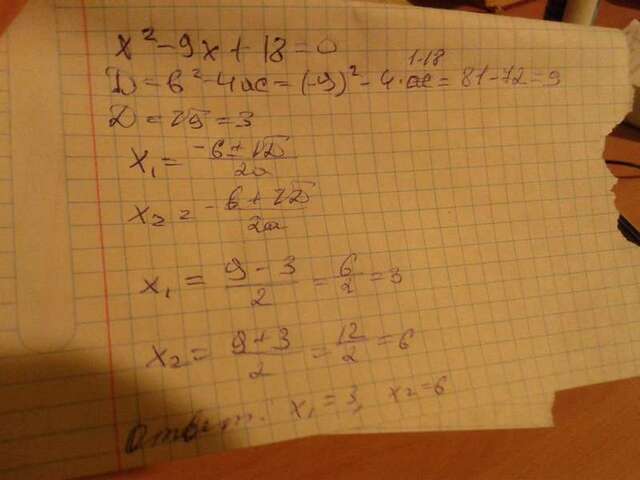 x² - 9x + 18 = 0
D = b² - 4ac = (-9)² - 4·1·18 = 81 - 72 = 9
D = √9 = 3
x₁ = -b + √D / 2a
x₂ = -b + √D / 2a
x₁ = 9 - 3 / 2 = 6 / 2 = 3
x₂ = 9 + 3 / 2 = 12 / 2 = 6
Ответ: x₁ = 3, x₂ = 6